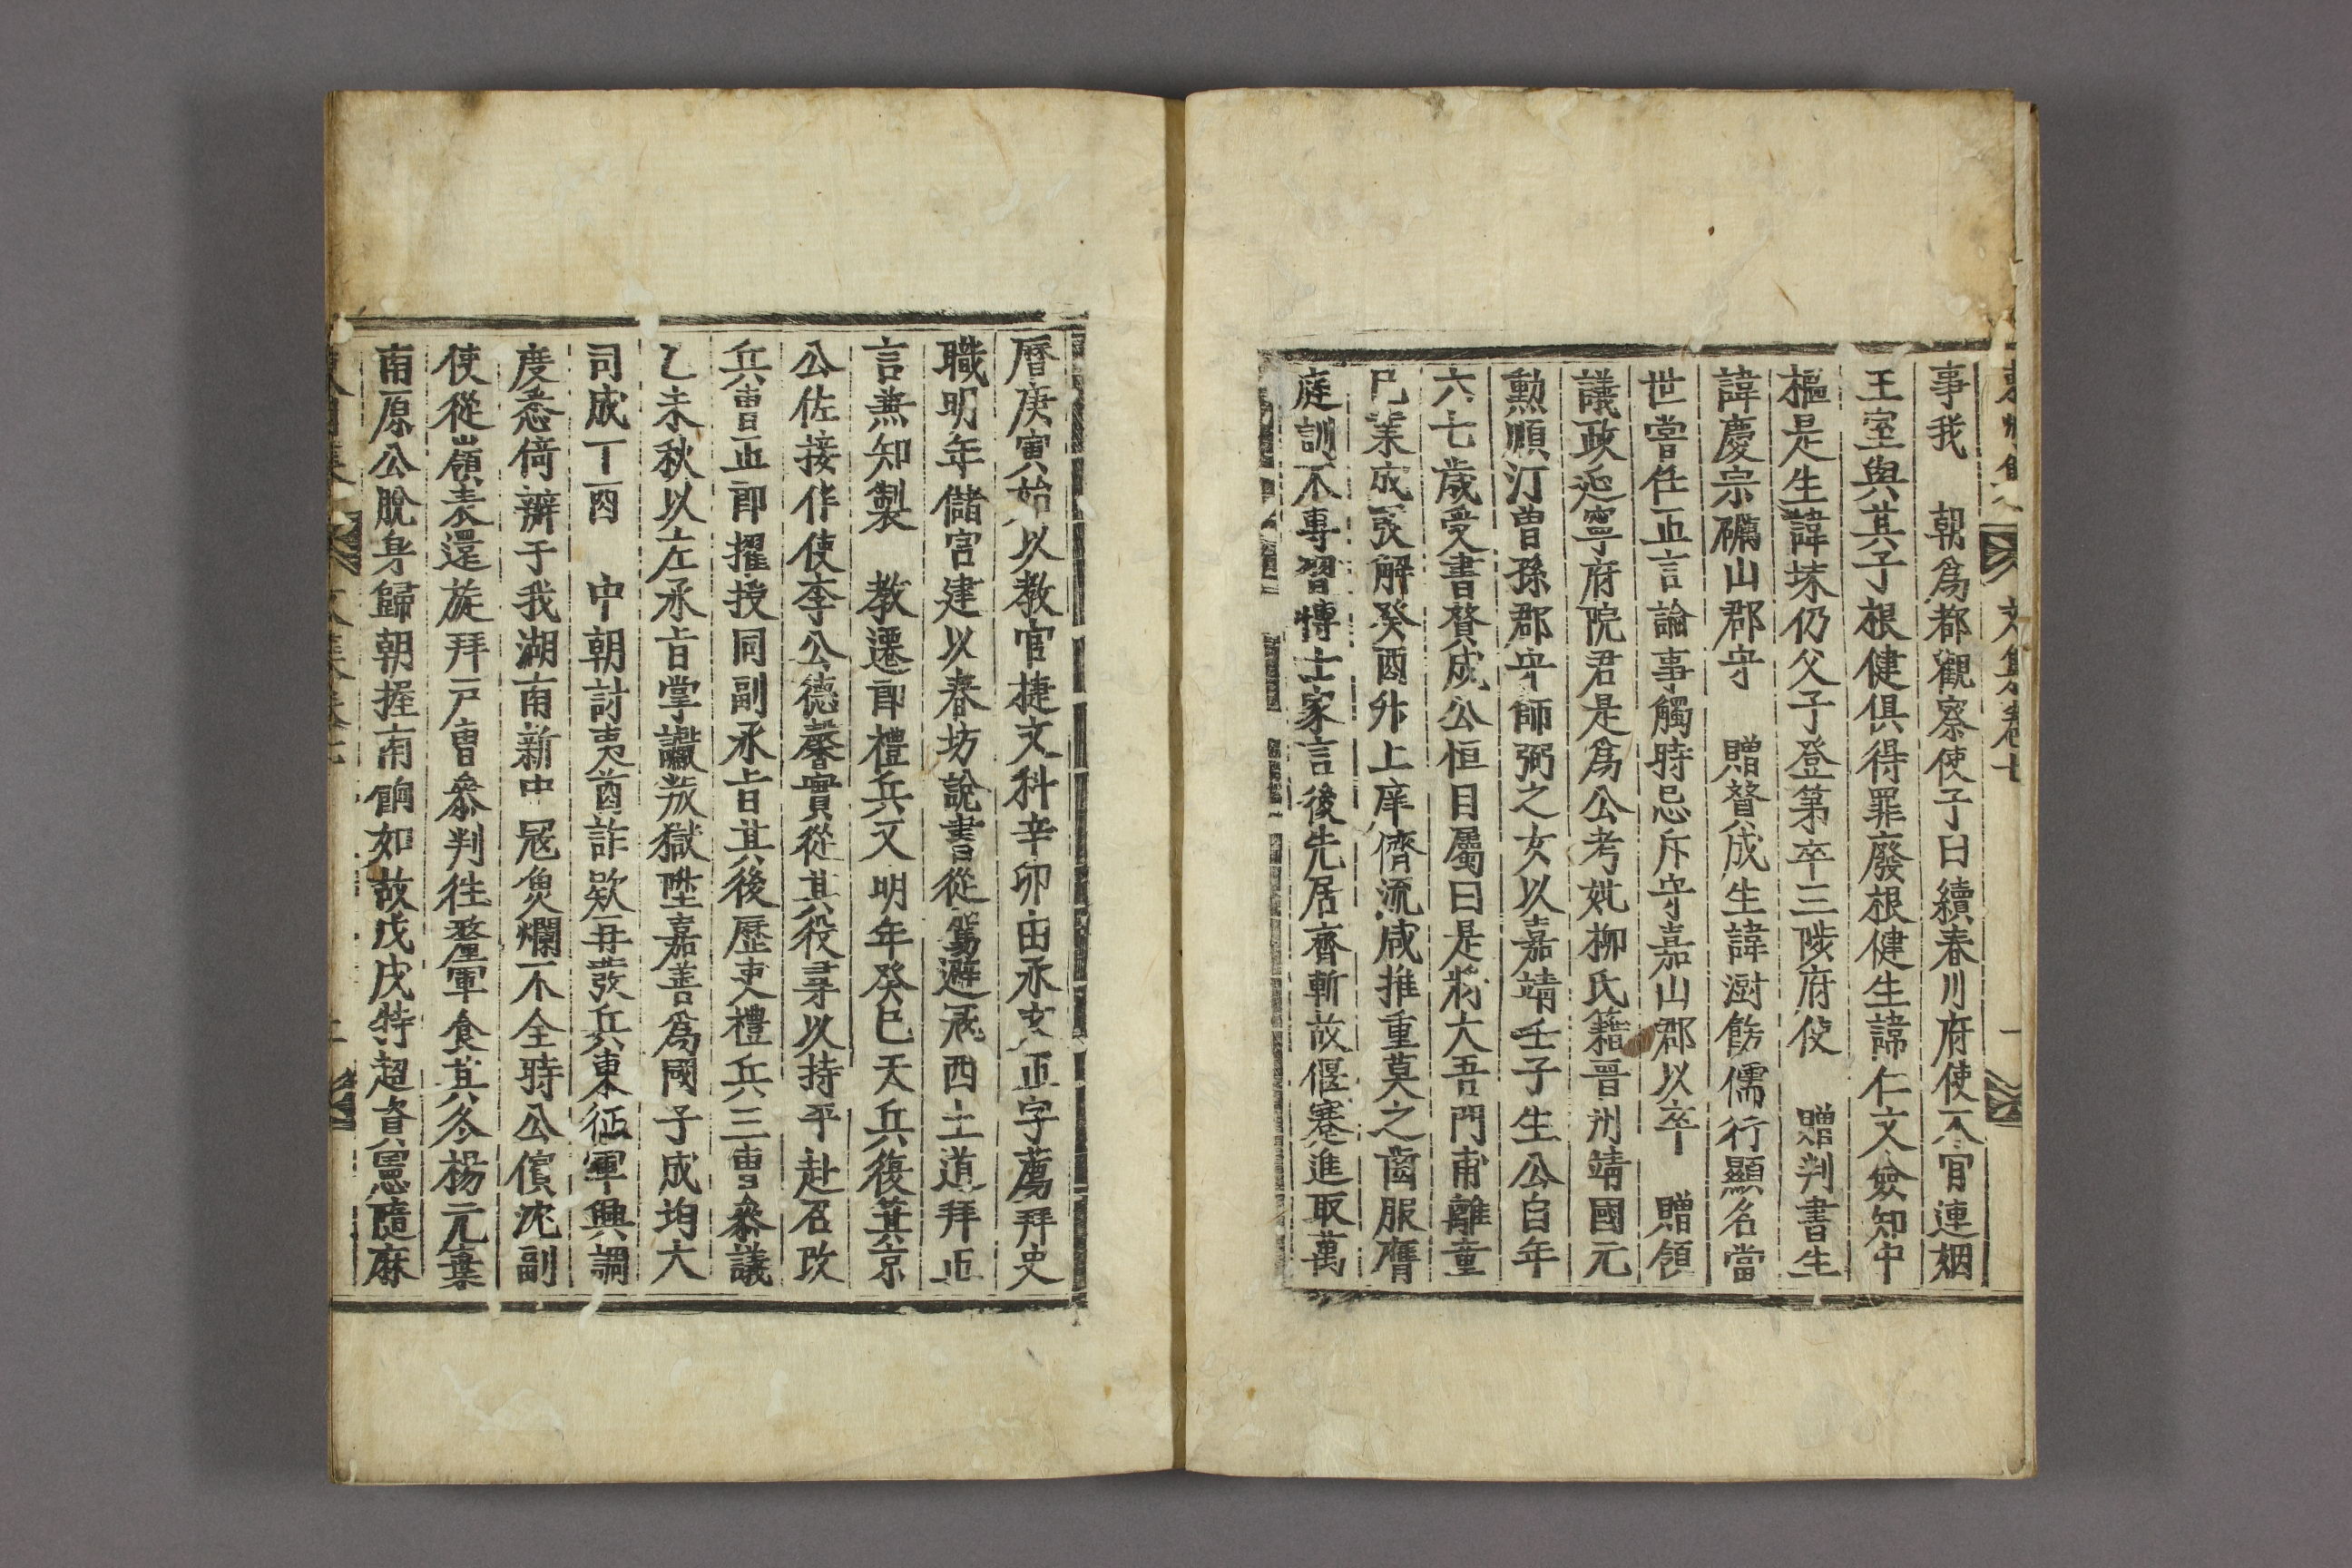 事我 朝爲都觀察使子曰續春川府使不官連姻
王室與其子根健俱得罪廢根健生諱仁文僉知中
樞是生諱埰仍父子登第卒三陟府使 贈判書生
諱慶宗礪山郡守 贈贊成生諱澍餝儒行顯名當
世嘗任正言論事觸時忌斥守嘉山郡以卒 贈領
議政延寧府院君是爲公考妣柳氏籍晉州靖國元
勳順汀曾孫郡守師弼之女以嘉靖壬子生公自年
六七歲受書贊成公恒目屬曰是將大吾門甫離童
已業成發解癸酉升上庠儕流咸推重莫之齒服膺
庭訓不專習博士家言後先居齊斬故偃蹇進取萬
曆庚寅始以教官捷文科辛卯由承文正字薦拜史
職明年儲宮建以春坊說書從篤避冦西土道拜正
言兼知製 教遷郎禮兵又明年癸巳天兵復箕京
公佐接伴使李公德馨實從其役尋以持平赴召改
兵曹正郎擢授同副承旨其後歷吏禮兵三曹叅議
乙未秋以左承旨掌讞叛獄陞嘉善爲國子成均大
司成丁酉 中朝討夷酋詐欵再發兵東征軍興調
度悉倚辦于我湖南新中冦魚爛不全時公儐沈副
使從嶺表還旋拜戶曹叅判往督軍食其冬楊元棄
南原公脫身歸朝握南餉如故戊戌特超資憲隨麻